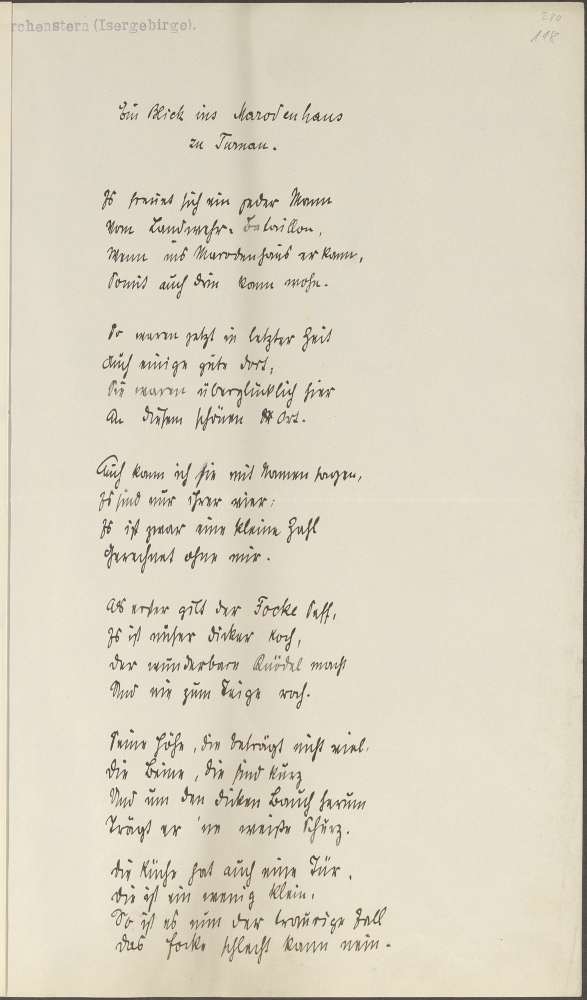 rchenstern (Isergebirge).
210
118
Ein Blick ins Marodenhaus
zu Turnau.
Es freuet sich ein jeder Mann
Vom Landwehr-Bataillon,
Wenn ins Marodenhaus er kann,
Somit auch drin kann wohn.
So waren jetzt in letzter Zeit
Auch einige gute dort,
Sie waren überglücklich hier
An diesem schönen Ort.
Auch kann ich sie mit Namen sagen,
Es sind nur ihrer vier:
Es ist zwar eine kleine Zahl
Gerechnet ohne mir.
Als erster gilt der Focke Seff,
Es ist unser dicker Koch,
Der wunderbare Knödel macht
Und nie zum Teige roch.
Seine Höhe, die beträgt nicht viel.
Die Beine, die sind kurz
Und um den dicken Bauch herum
Trägt er 'ne weiße Schurz.
Die Küche hat auch eine Tür,
Die ist ein wenig klein.
So ist es nun der traurige Fall
Das Focke schlecht kann nein.